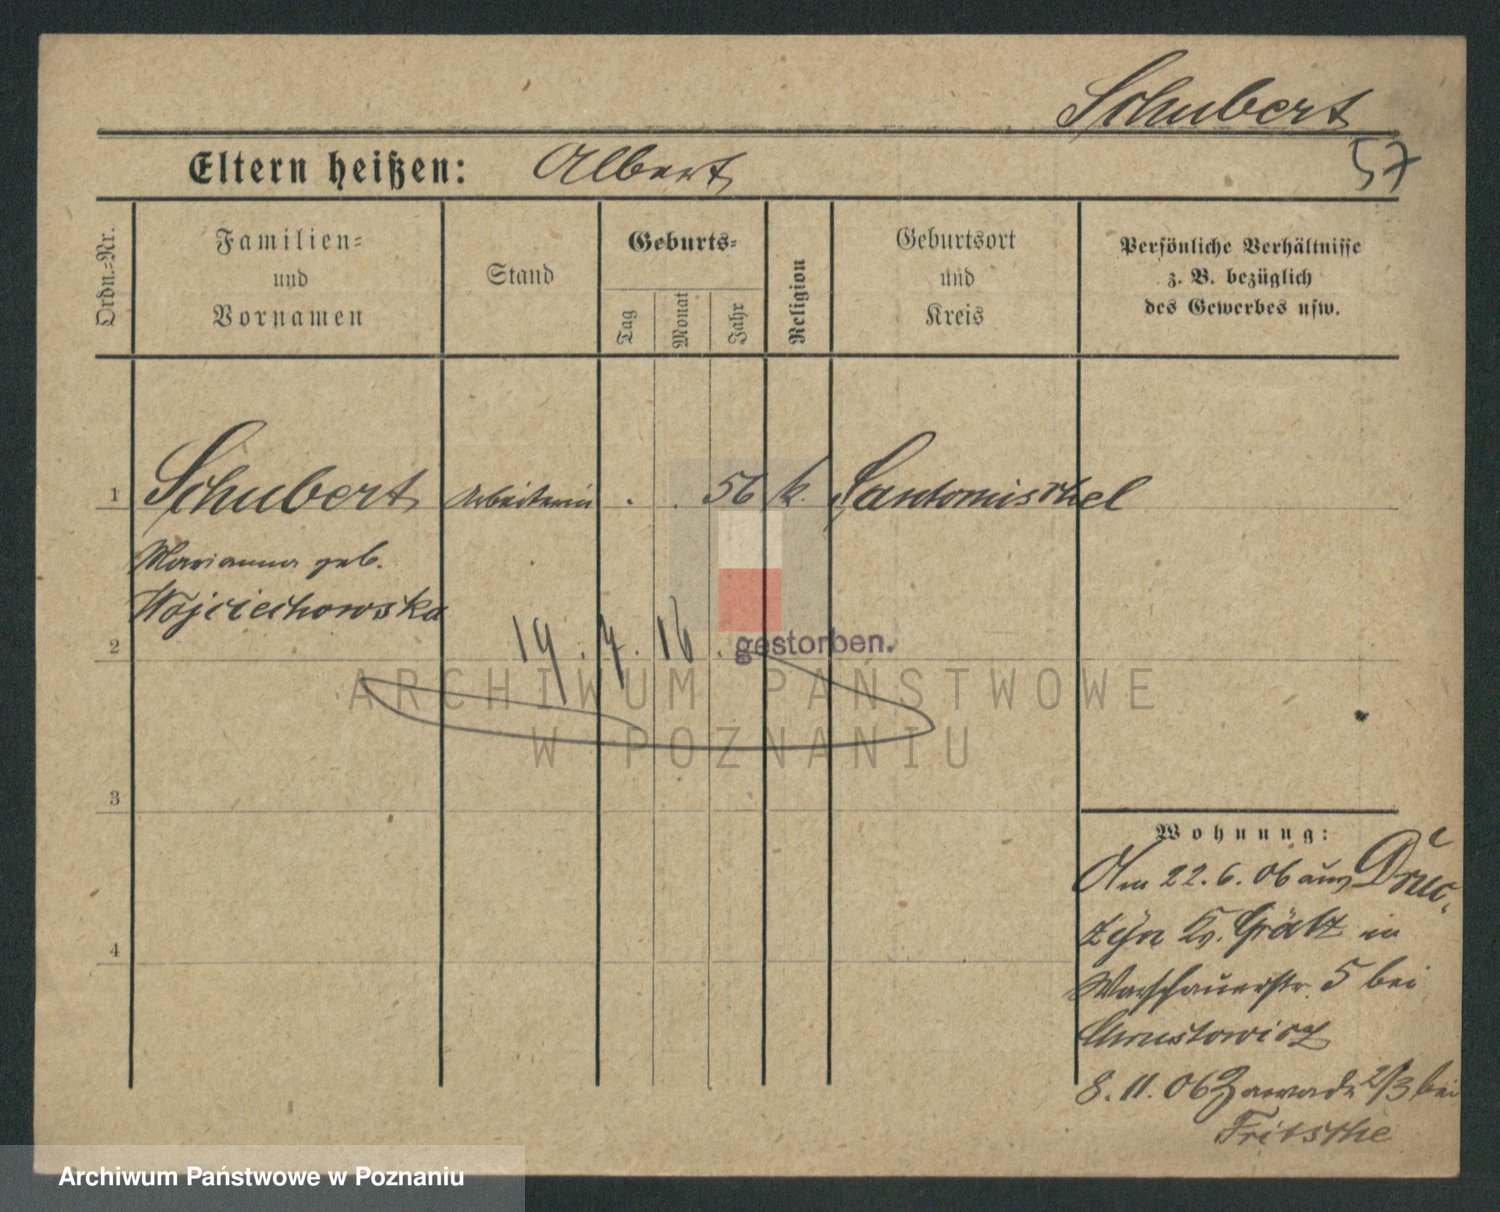 Schubert
57
Eltern heißen: Albert
Ordn.=Nr.
Familien=
und
Vornamen
Stand
Geburts=
Tag
Monat
Jahr
Religion
Geburtsort
und
Kreis
Persönliche Verhältnisse
z. B. bezüglich
des Gewerbes usw.
1 Schubert Arbeiterin . . 56 k. Santomischel
Marianna geb.
Wojciechowska
2 19. 7. 16. gestorben.
3
4
ARCHIWUM PAŃSTWOWE
W POZNANIU
Wohnung:
Am 22.6.06 aus
Kr. Grätz in
Warschauerstr. 5 bei
8. 11. 06 Zawade 2/3 bei
Fritsche
Archiwum Państwowe w Poznaniu